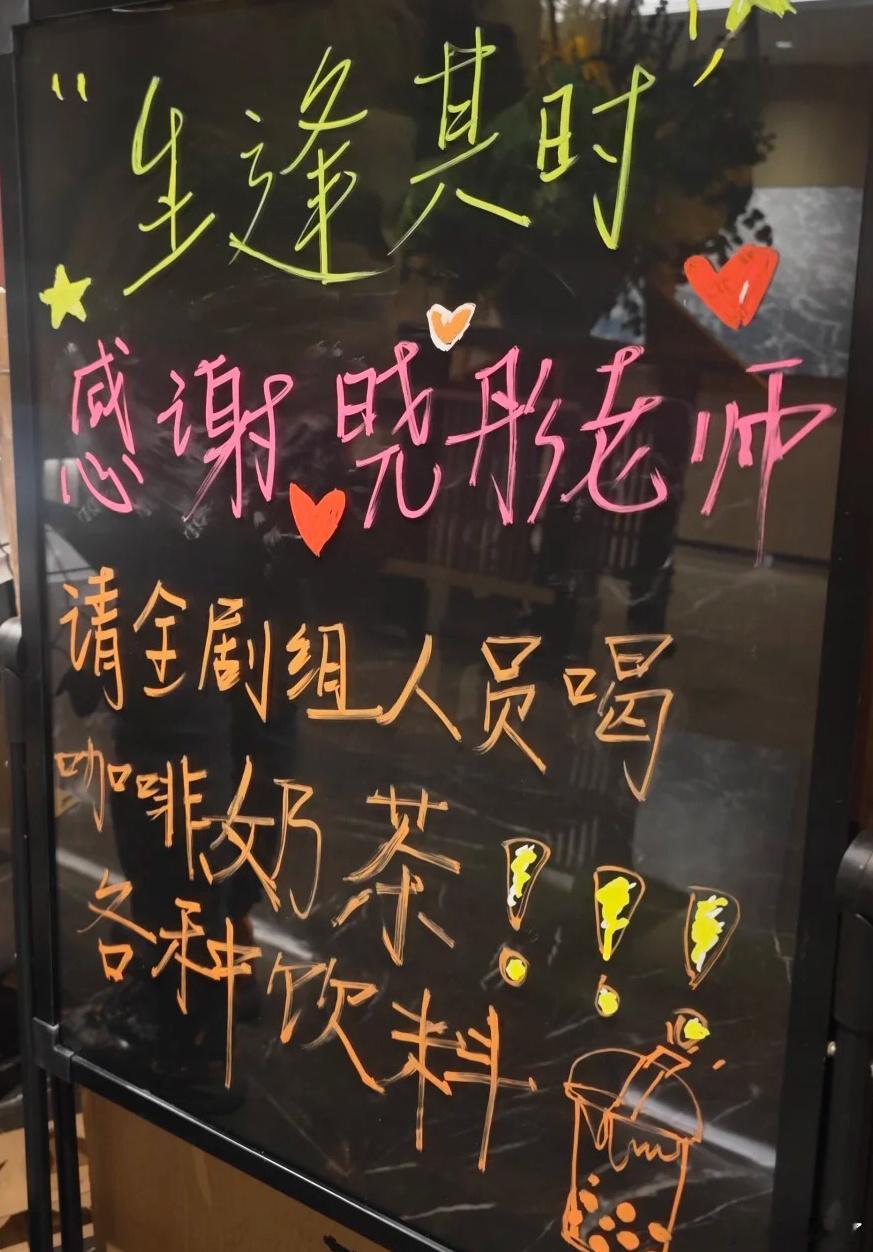 “生逢其时”
感谢晓彤老师
请全剧组人员喝
咖啡奶茶！！！
各种饮料